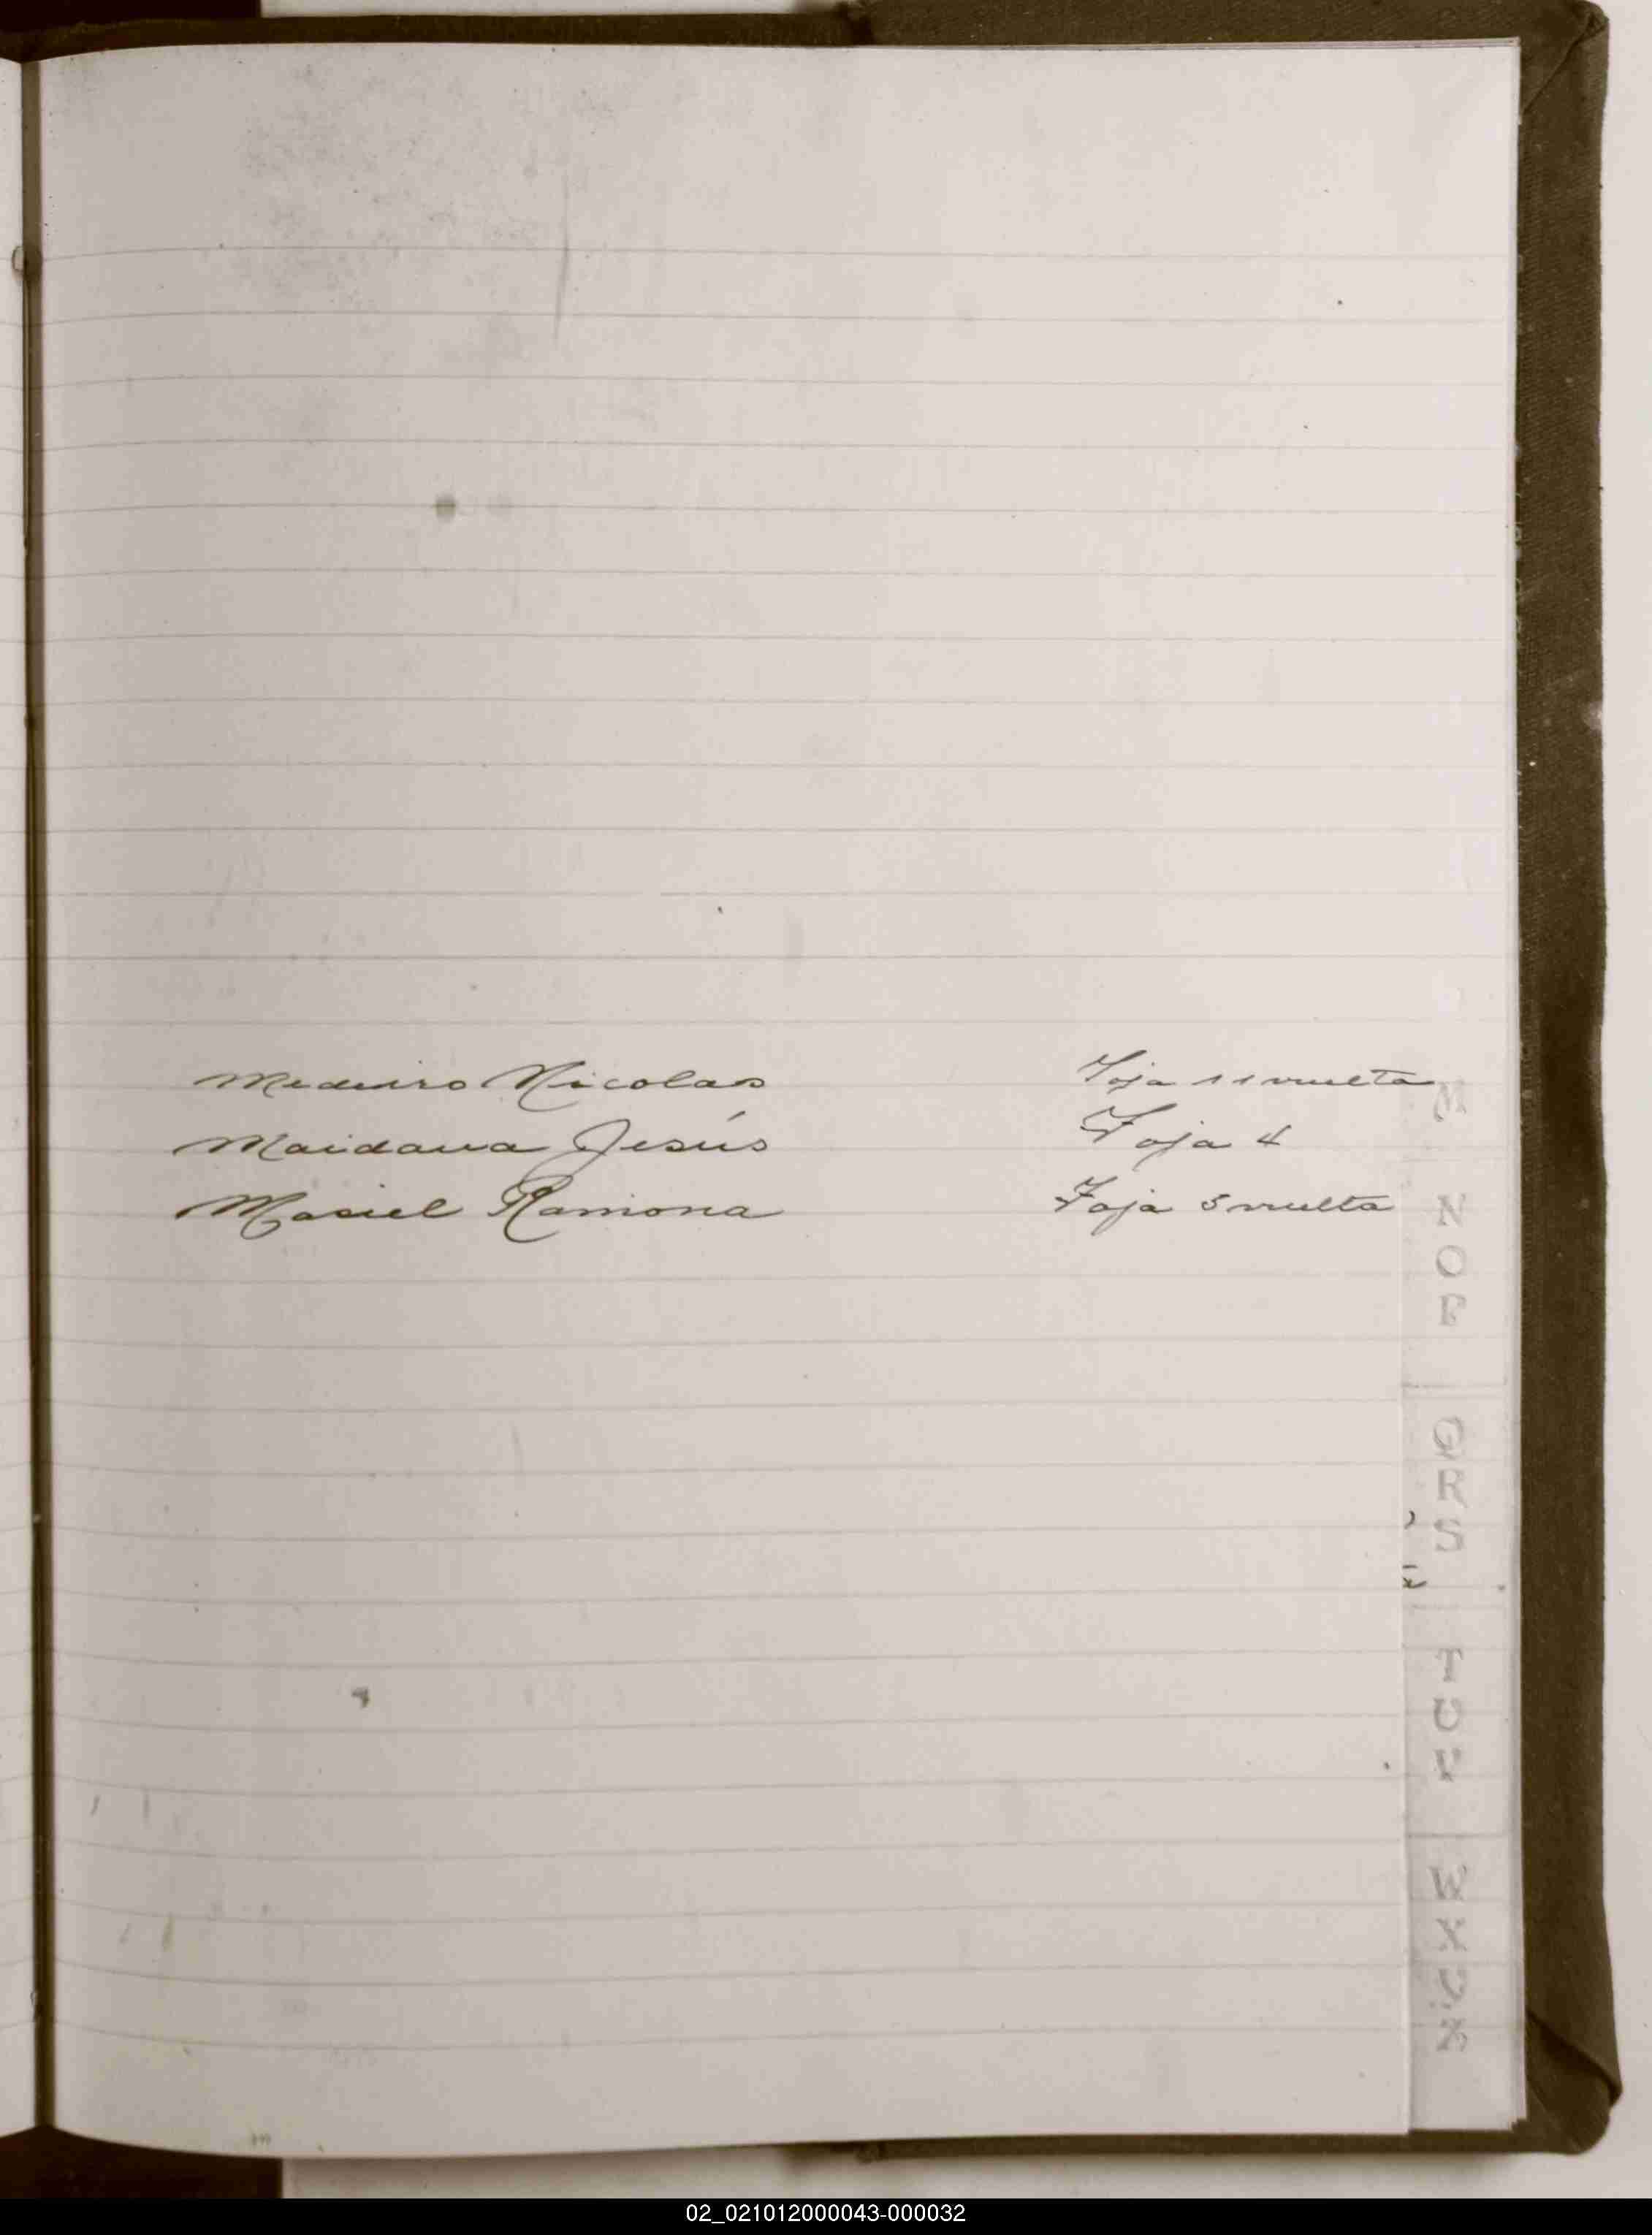 Medeiro Nicolas Foja 11 vuelta
Maidana Jesús Foja 4
Masiel Ramona Foja 5 vuelta
M
N
O
P
Q
R
S
T
U
V
W
X
Y
Z
02_021012000043-000032